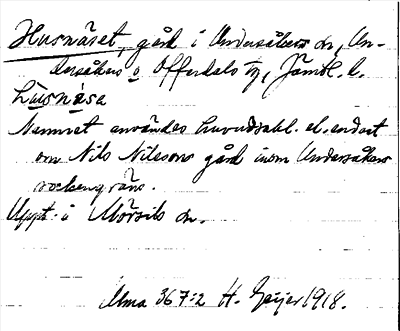 Husnäset, gård i Undersåkers sn, Un-
dersåkers o Offerdals tg, Jämtl. l.
hùsnása
Namnet användes huvudsakl. el. endast
om Nils Nilssons gård inom Undersåkers
sockengräns.
Uppt. i Mörsils sn.
Ulma 367:2 H. Geijer 1918.